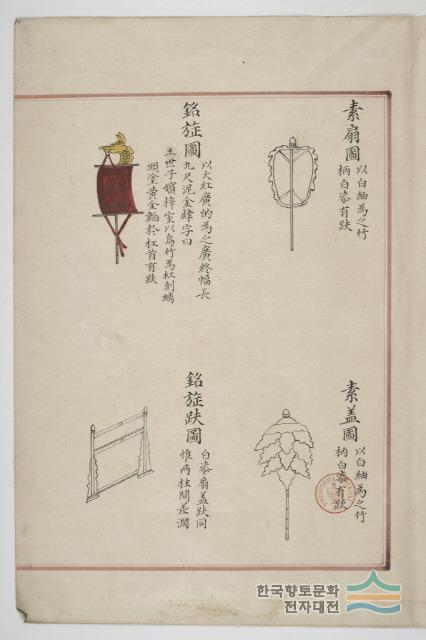 素扇圖
以白紬為之竹
柄白漆有趺
銘旌圖
以大紅廣的為之廣終幅長
九尺泥金篆字曰
王世子嬪梓室以烏竹為杠刻螭
頭塗黃金韜於杠首有趺
素盖圖
以白紬為之竹
柄白漆有趺
銘旌趺圖
白漆扇盖趺同
惟兩柱間差濶
한국향토문화
전자대전